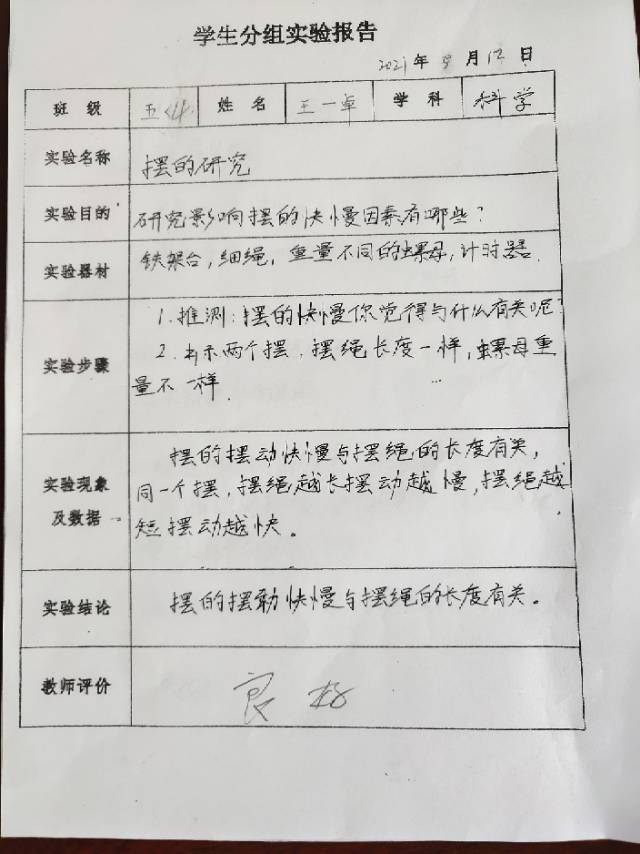 学生分组实验报告
2021年 月12日
班级 五 姓名 王一卓 学科 科学
实验名称 摆的研究
实验目的 研究影响摆的快慢因素有哪些?
实验器材 铁架台,细绳,重量不同的螺母,计时器.
实验步骤
1.推测:摆的快慢你觉得与什么有关呢?
2. 两个摆,摆绳长度一样,螺母重
量不一样.
实验现象及数据
摆的摆动快慢与摆绳的长度有关,
同一个摆,摆绳越长摆动越慢,摆绳越
短摆动越快。
实验结论 摆的摆动快慢与摆绳的长度有关。
教师评价 良好